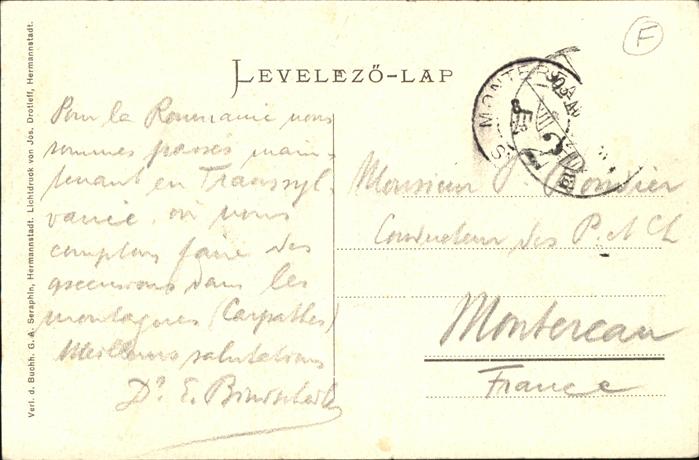 LEVELEZŐ-LAP
F
Pour la Roumanie nous
sommes passés main-
tenant en Transsyl-
vanie, où nous
comptons faire des
ascensions dans les
montagnes (Carpathes)
Meilleures salutations
Dr E.
Monsieur
Conducteur des P. et Ch
Montereau
France
MONTEREAU
Verl. d. Buchh. G. A. Seraphin, Hermannstadt. Lichtdruck von Jos. Drotleff, Hermannstadt.